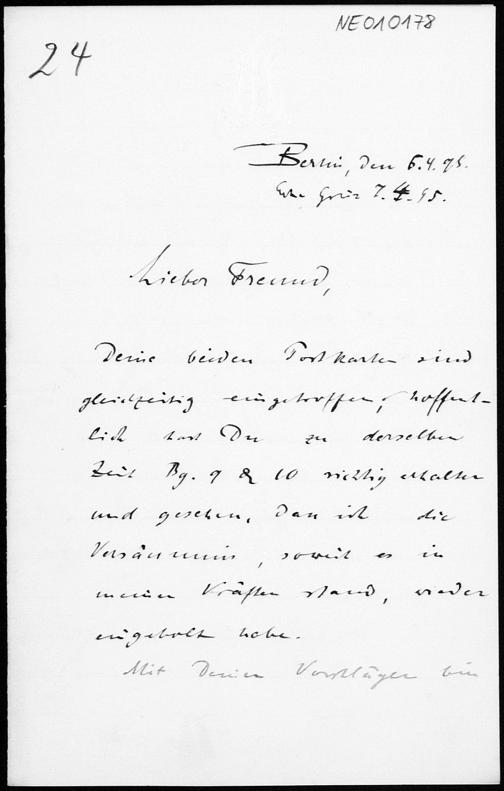 NE010178
24
Berlin, den 6.4.95.
7.4.95.
Lieber Freund,
Deine beiden Postkarten sind
gleichzeitig eingetroffen, hoffent-
lich hast Du zu derselben
Zeit Bg. 9 & 10 richtig erhalten
und gesehen, dass ich die
Versäumnis, soweit es in
meinen Kräften stand, wieder
eingeholt habe.
Mit Deinen Vorschlägen bin